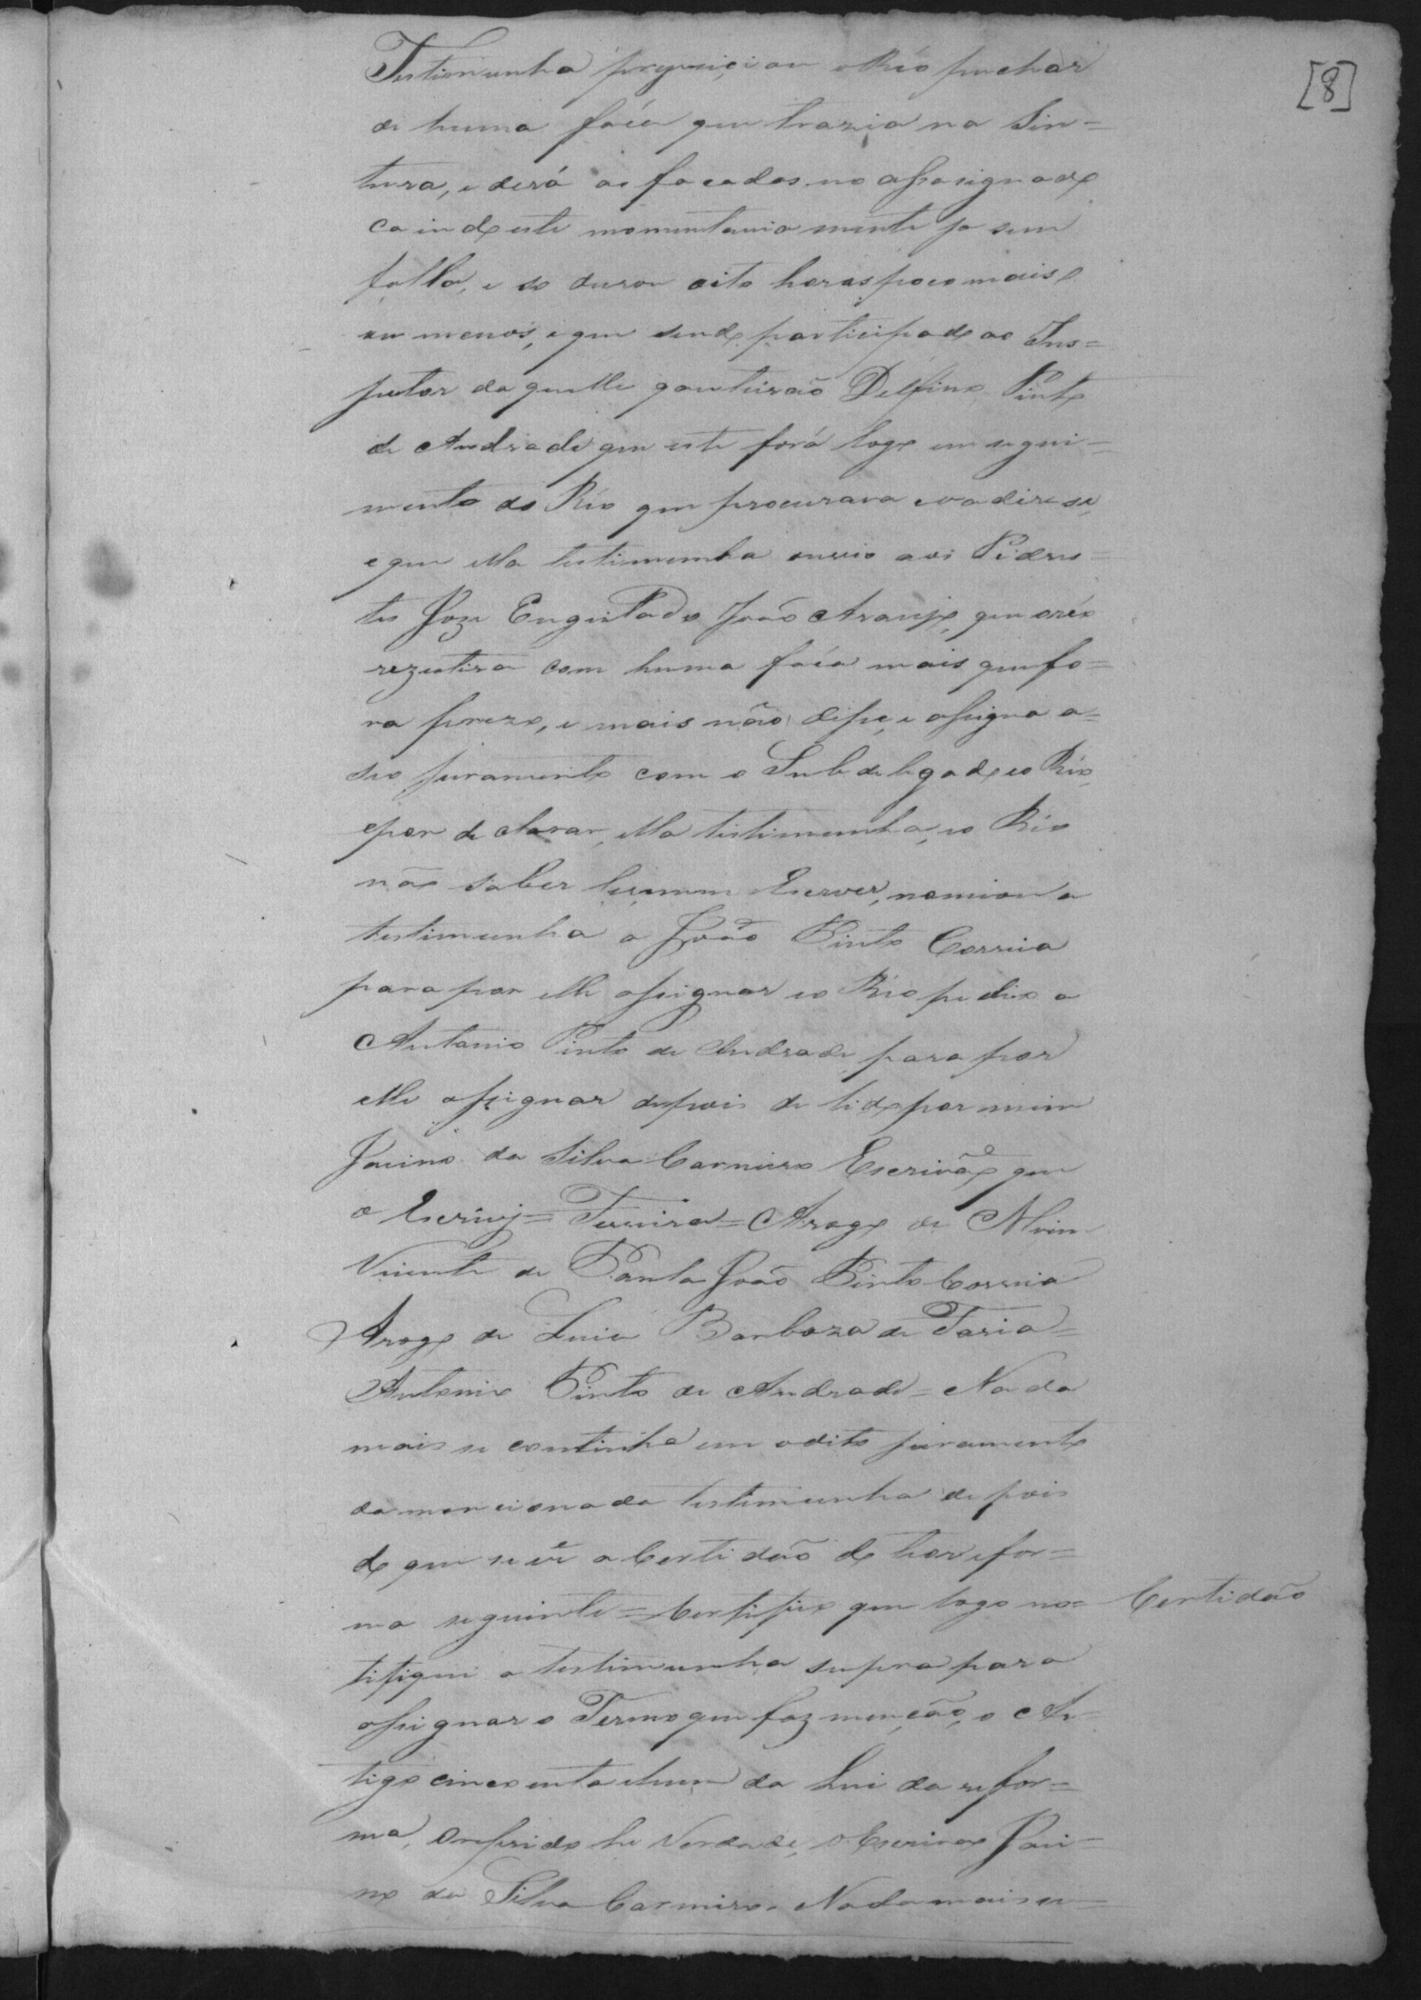 [8]
Testimunha prezenciou o Réo puchar
de huma fáca que trazia na Sin=
tura, e dera as facadas no assasignado
caindo este momentaniamente ja sem
falla, e so durou oito horas poco mais
ou menos, e que sendo participado ao Ins=
petor daquelle quarteirão Delfino Pinto
de Andrade que este forá logo em segui=
mento do Réo que procurava evadirse,
e que ella testimunha ouvio aos Pedres=
tes Joze Engeitado João Araujo, que oréo
rezestira com huma fáca mais que fo=
ra prezo, e mais não disse, e assigna o
seo juramento com o Subdelegado eo Réo,
epor declarar ella testimunha, eo Réo
não saber ler, nem Escrever, nomiou a
testimunha a João Pinto Correia
para por elle assignar eo Réo pedio a
Antonio Pinto de Andrade para por
elle assignar depois de lido por mim
Jacino da Silva Carneiro Escrivão que
o Escrivj = Terreira = Arogo de
Vicente de Paula João Pinto Correia
Arogo de Luis Barboza de Faria =
Antonio Pinto de Andrade = Nada
mais se continha em odito juramento
da mencionada testimunha depois
do que se vê a Certidão do theor e for=
ma seguinte = Certifico que logo no=
Certidão
tifiquei a testimunha supra para
assignar o Termo que faz menção, o Ar=
tigo cincoenta ehum da Lei da refor=
ma, o referido he Verdade, o Escrivão Jaci=
no da Silva Carneiro. Nada mais se =